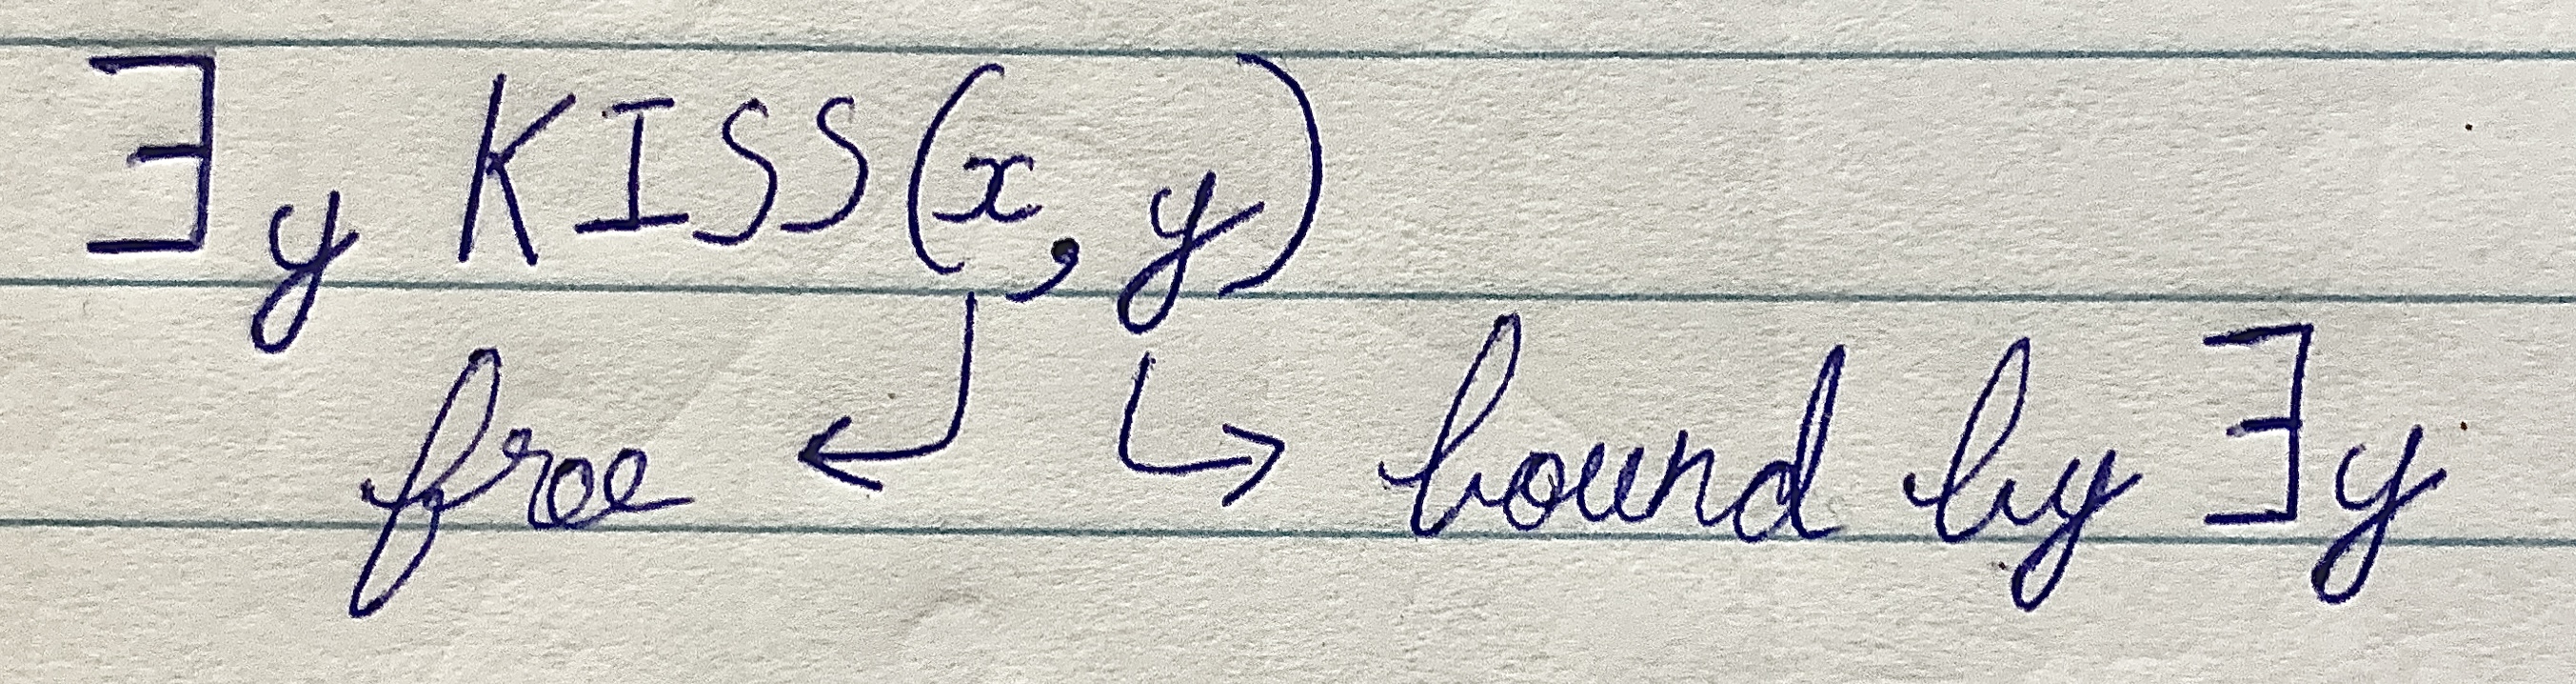 ∃y KISS(x, y)
free ← ↳ bound by ∃y